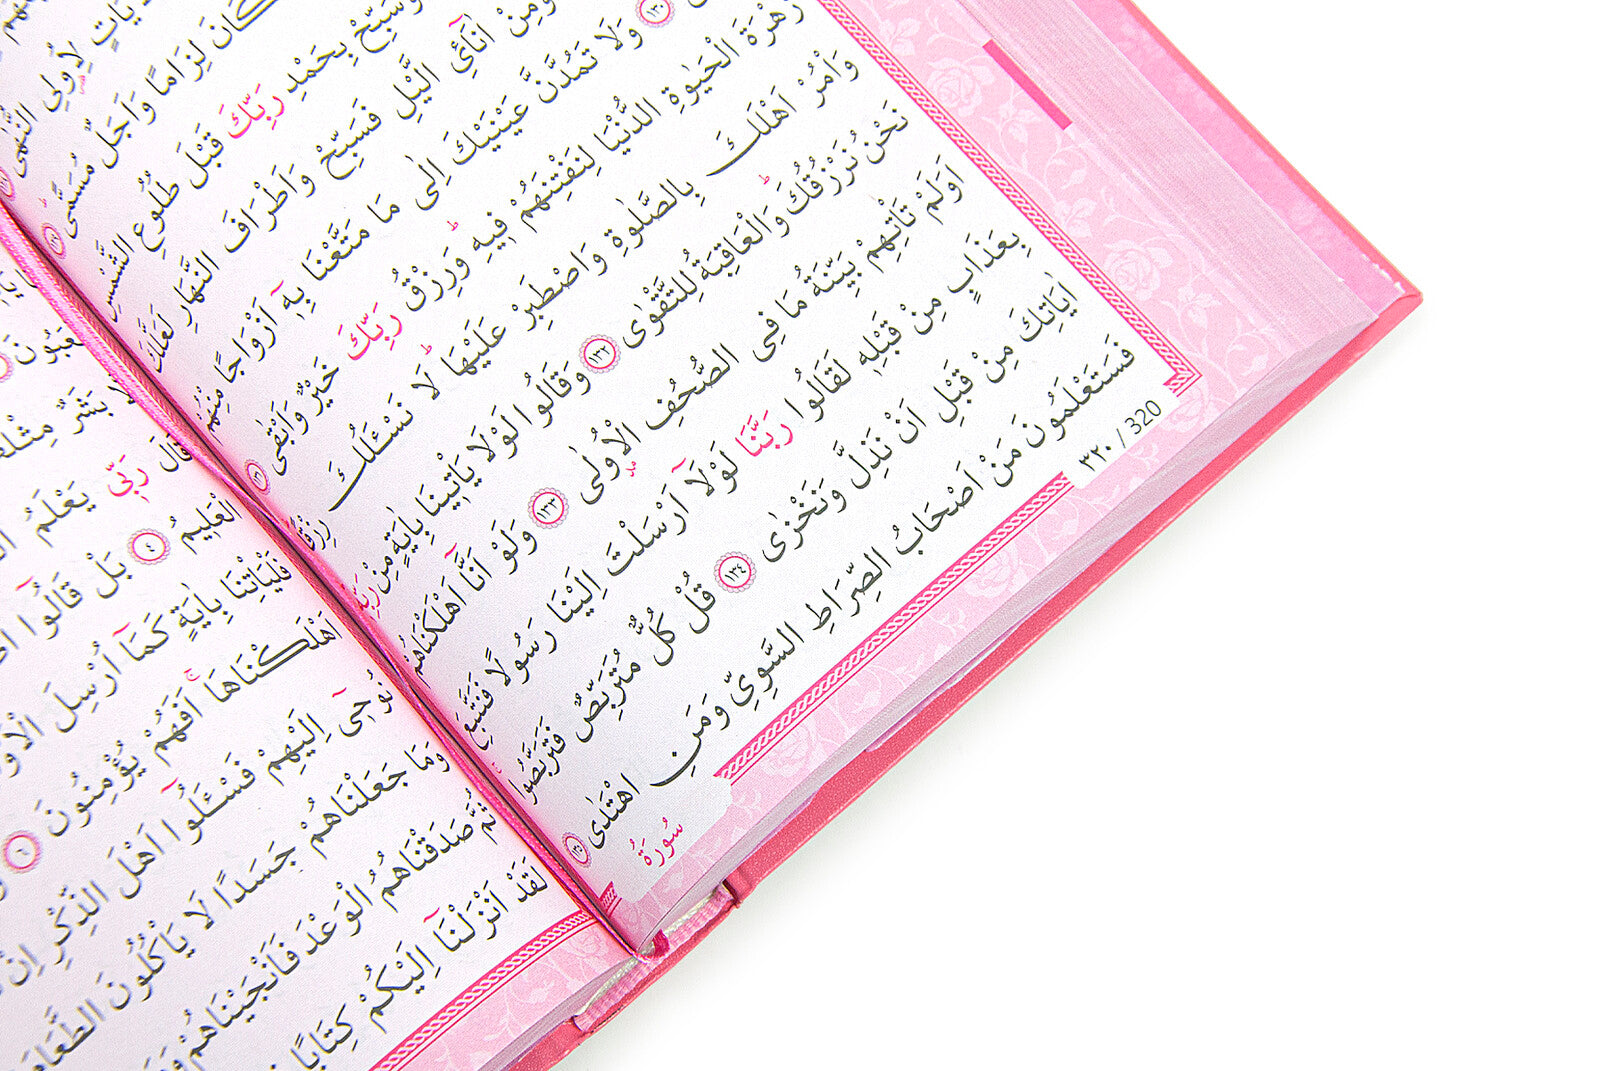 لِاُولِى النُّهٰى
كَانَ لِزَامًا وَاَجَلٌ مُسَمًّى ١٢٩
وَسَبِّحْ بِحَمْدِ رَبِّكَ قَبْلَ طُلُوعِ الشَّمْسِ
وَمِنْ اٰنَآئِ الَّيْلِ فَسَبِّحْ وَاَطْرَافَ النَّهَارِ لَعَلَّكَ
١٣٠ وَلَا تَمُدَّنَّ عَيْنَيْكَ اِلٰى مَا مَتَّعْنَا بِهٖٓ اَزْوَاجًا مِنْهُمْ
زَهْرَةَ الْحَيٰوةِ الدُّنْيَا لِنَفْتِنَهُمْ فٖيهِ ط وَرِزْقُ رَبِّكَ خَيْرٌ وَاَبْقٰى ١٣١
وَأْمُرْ اَهْلَكَ بِالصَّلٰوةِ وَاصْطَبِرْ عَلَيْهَا ط لَا نَسْـَٔلُكَ رِزْقًا
نَحْنُ نَرْزُقُكَ ط وَالْعَاقِبَةُ لِلتَّقْوٰى ١٣٢ وَقَالُوا لَوْلَا يَاْتٖينَا بِاٰيَةٍ مِنْ رَبِّهٖ
اَوَلَمْ تَاْتِهِمْ بَيِّنَةُ مَا فِى الصُّحُفِ الْاُولٰى ١٣٣ وَلَوْ اَنَّٓا اَهْلَكْنَاهُمْ
بِعَذَابٍ مِنْ قَبْلِهٖ لَقَالُوا رَبَّنَا لَوْلَٓا اَرْسَلْتَ اِلَيْنَا رَسُولًا فَنَتَّبِعَ
اٰيَاتِكَ مِنْ قَبْلِ اَنْ نَذِلَّ وَنَخْزٰى ١٣٤ قُلْ كُلٌّ مُتَرَبِّصٌ فَتَرَبَّصُوا
فَسَتَعْلَمُونَ مَنْ اَصْحَابُ الصِّرَاطِ السَّوِيِّ وَمَنِ اهْتَدٰى ١٣٥
٣٢٠ / 320
سُورَةُ
بَشَرٌ
قَالَ رَبّٖى يَعْلَمُ
الْعَلٖيمُ ٤ بَلْ قَالُٓوا
فَلْيَاْتِنَا بِاٰيَةٍ كَمَٓا اُرْسِلَ
اَهْلَكْنَاهَا ج اَفَهُمْ يُؤْمِنُونَ ٦
نُوحٖٓى اِلَيْهِمْ فَسْـَٔلُٓوا اَهْلَ الذِّكْرِ اِنْ
وَمَا جَعَلْنَاهُمْ جَسَدًا لَا يَاْكُلُونَ الطَّعَامَ
ثُمَّ صَدَقْنَاهُمُ الْوَعْدَ فَاَنْجَيْنَاهُمْ
لَقَدْ اَنْزَلْنَٓا اِلَيْكُمْ كِتَابًا